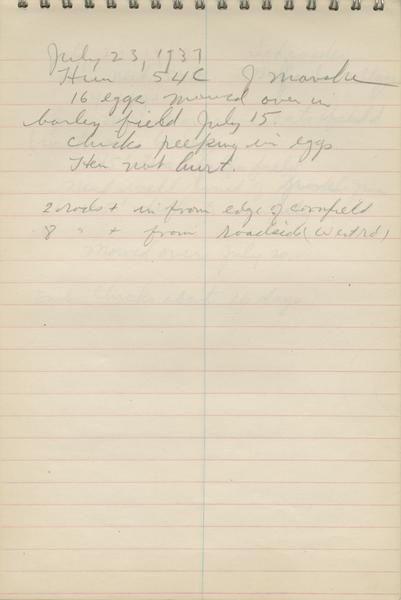 July 23, 1937
Hun 54C J
16 eggs mowed over in
barley field July 15.
chicks peeping in eggs
Hen not hurt.
2 rods + in from edge of cornfield
8 " + from roadside (West rd)